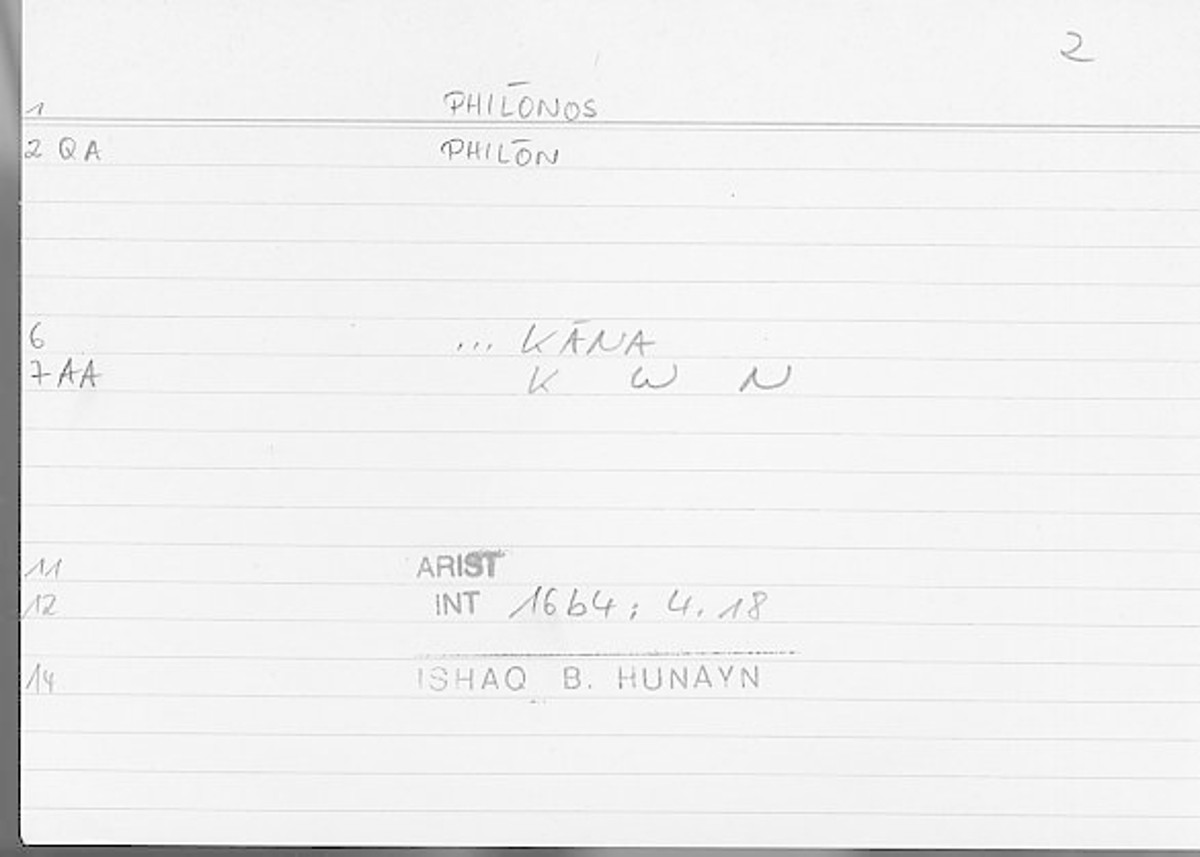 2
1 PHILŌNOS
2 QA PHILŌN
6 ... KĀNA
7 AA K W N
11 ARIST
12 INT 16b4; 4.18
14 ISHAQ B. HUNAYN